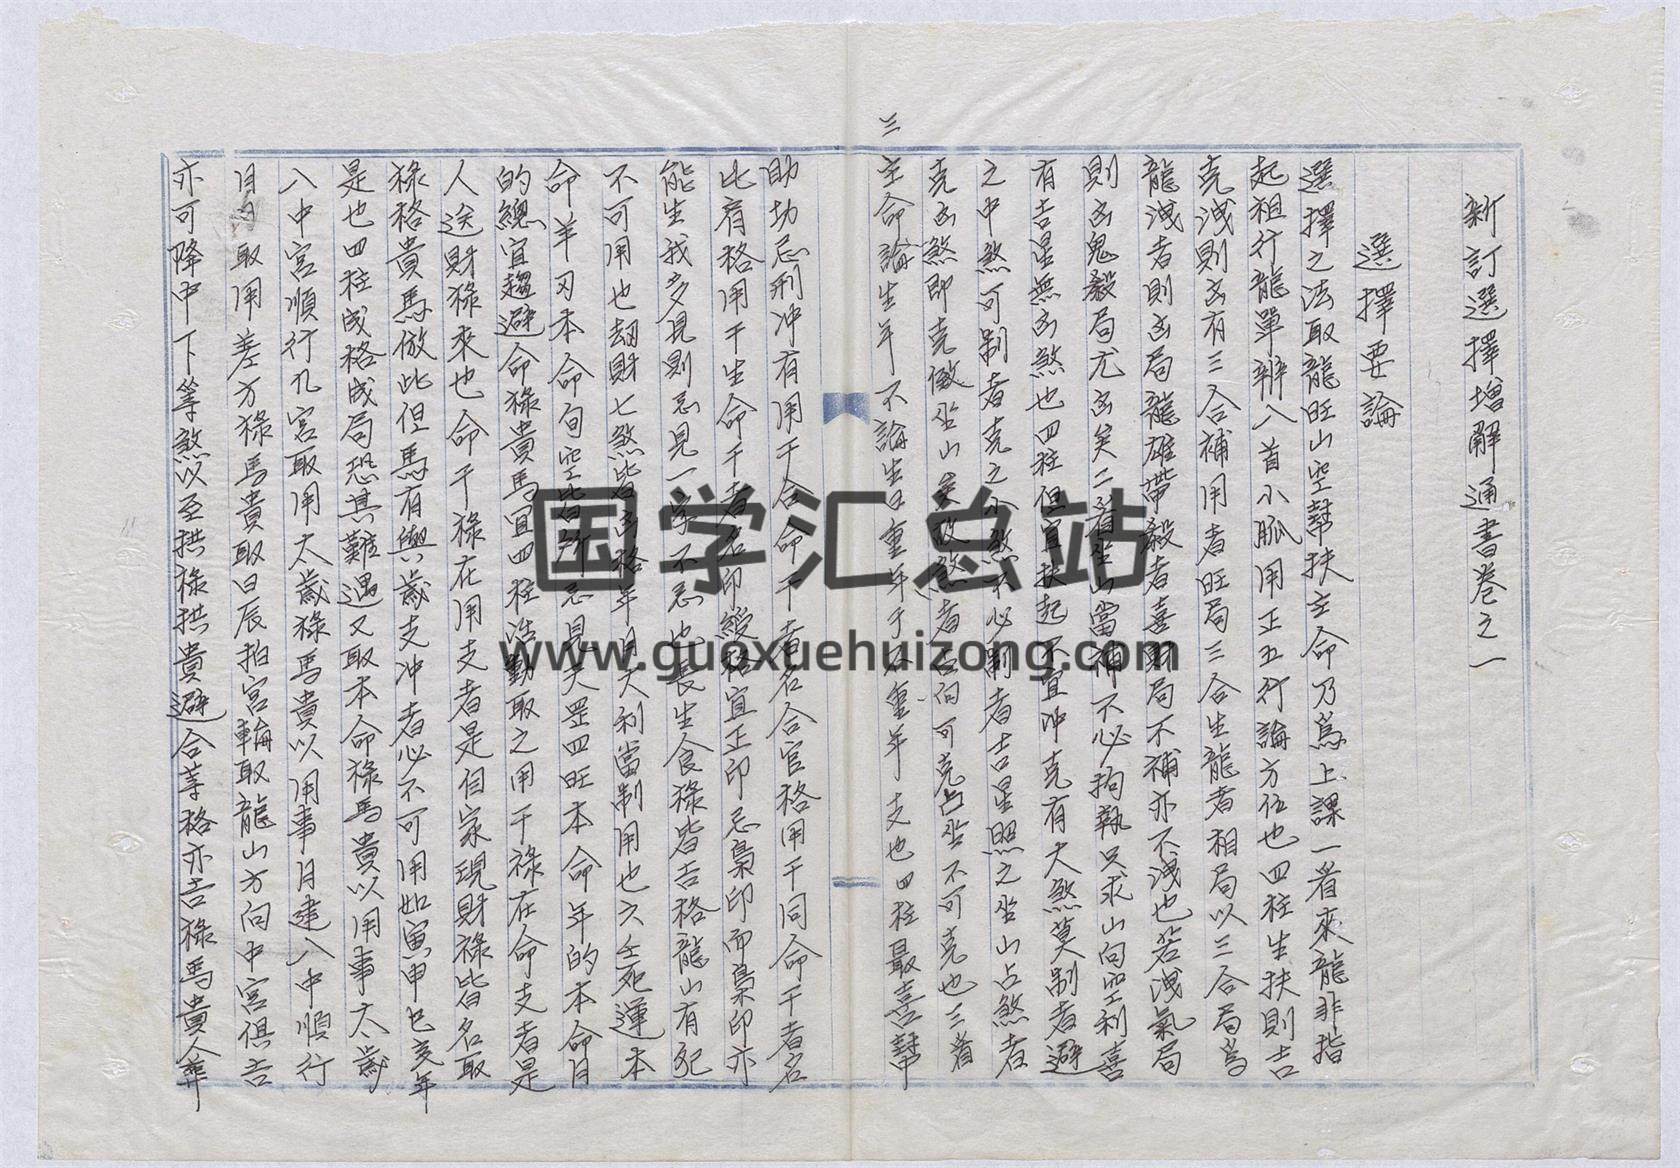 新訂選擇增解通書卷之一
選擇要論
選擇之法取龍旺山空幫扶主命乃爲上課一看來龍非指
起祖行龍單辨入首小脈用正五行論方位也四柱生扶則吉
克洩則凶有三合補用者旺局三合生龍者相局以三合局爲
龍洩者則凶局龍雄帶殺者喜財局不補亦不洩也若洩氣局
則凶鬼殺局尤凶矣二看坐山當神不必拘執只求山向空利喜
有吉星無凶煞也四柱但宜扶起不宜冲克有大煞莫制者避
之中煞可制者克之小煞不必制者吉星照之坐山占煞者
克凶煞即克儆坐山矣故煞者占向可克占坐不可克也三看
三
主命論生年不論生日重年干不重年支也四柱最喜幫
助切忌刑冲有用干合命干者名合官格用干同命干者名
比肩格用干生命干者名印綬格宜正印忌梟印而梟印亦
能生我多見則忌見一字不忌也長生食祿皆吉格龍山有犯
不可用也劫財七煞皆凶格年月天利當制用也六壬死運本
命羊刃本命旬空皆所忌見天罡四旺本命年的本命月
的總宜趨避命祿貴馬宜四柱活動取之用干祿在命支者是
人送財祿來也命干祿在用支者是自家現財祿皆名取
祿格貴馬倣此但馬有與歲支冲者必不可用如寅申巳亥年
是也四柱成格成局恐其難遇又取本命祿馬貴以用事太歲
入中宮順行九宮取用太歲祿馬貴以用事月建入中順行
取用差方祿馬貴取日辰拍宮輪取龍山方向中宮俱吉
亦可降中下等煞以至拱祿拱貴避合等格亦吉祿馬貴人